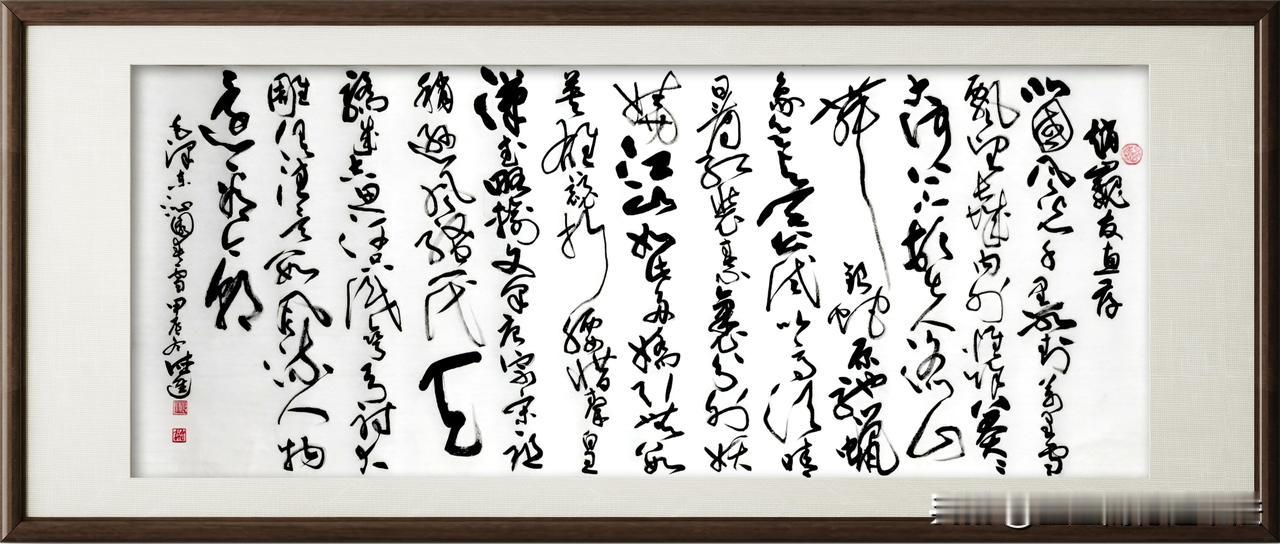 友直存
北國風光千里冰封萬里雪
飄望長城内外惟餘莽〻
大河上下頓失滔滔山
舞銀蛇原馳蠟
象欲与天公試比高須晴
日看紅裝素裹分外妖
嬈江山如此多嬌引無數
英雄競折腰惜秦皇
漢武略輸文采唐宗宋祖
稍遜風騷一代天
驕成吉思汗只識彎弓射大
雕俱往矣數風流人物
還看今朝
毛澤東沁園春雪甲辰冬